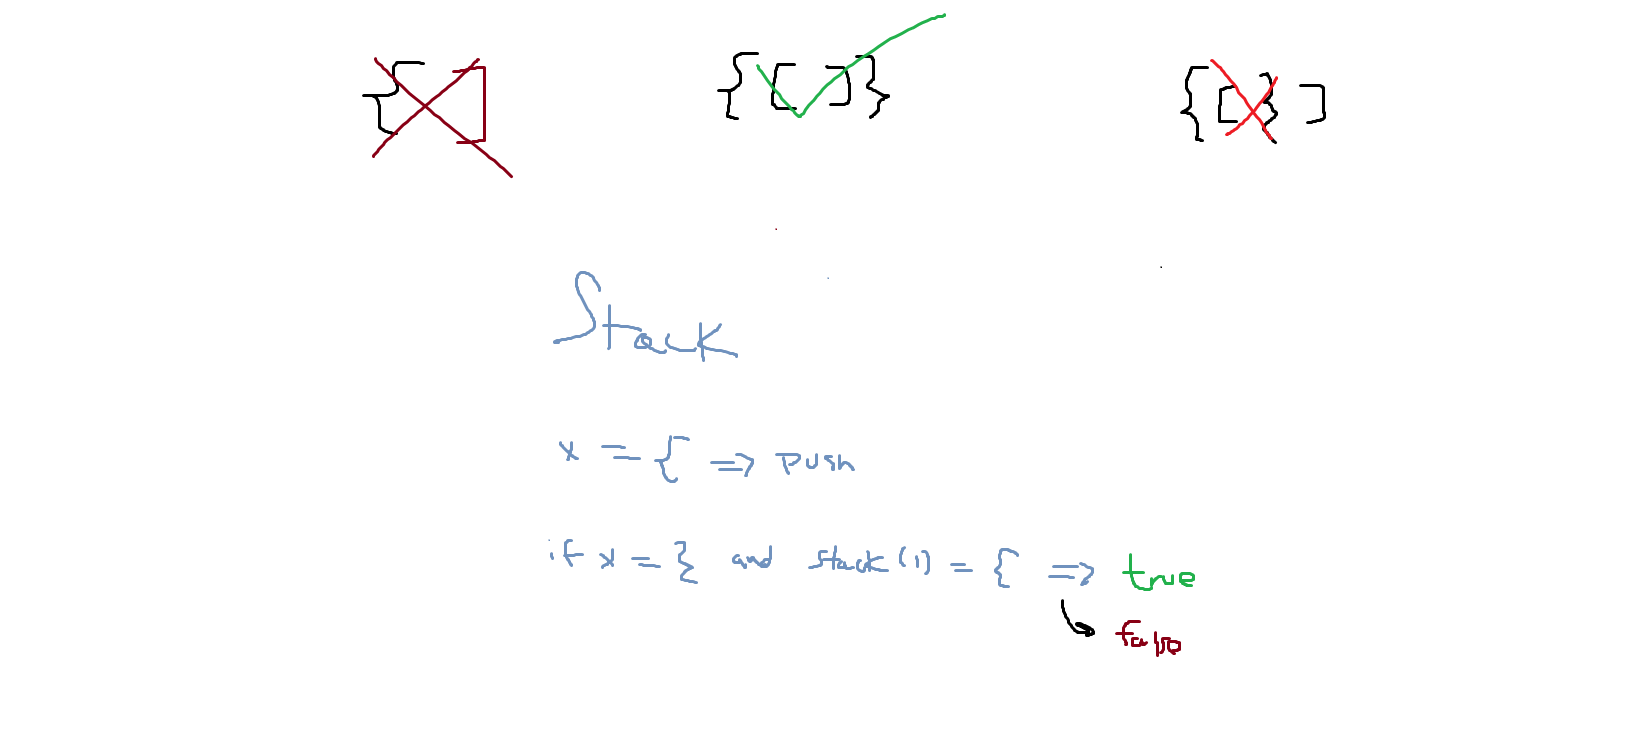 { ] { [ ] } { [ } ]
Stack
x = { => push
if x = } and stack(1) = { => true
false